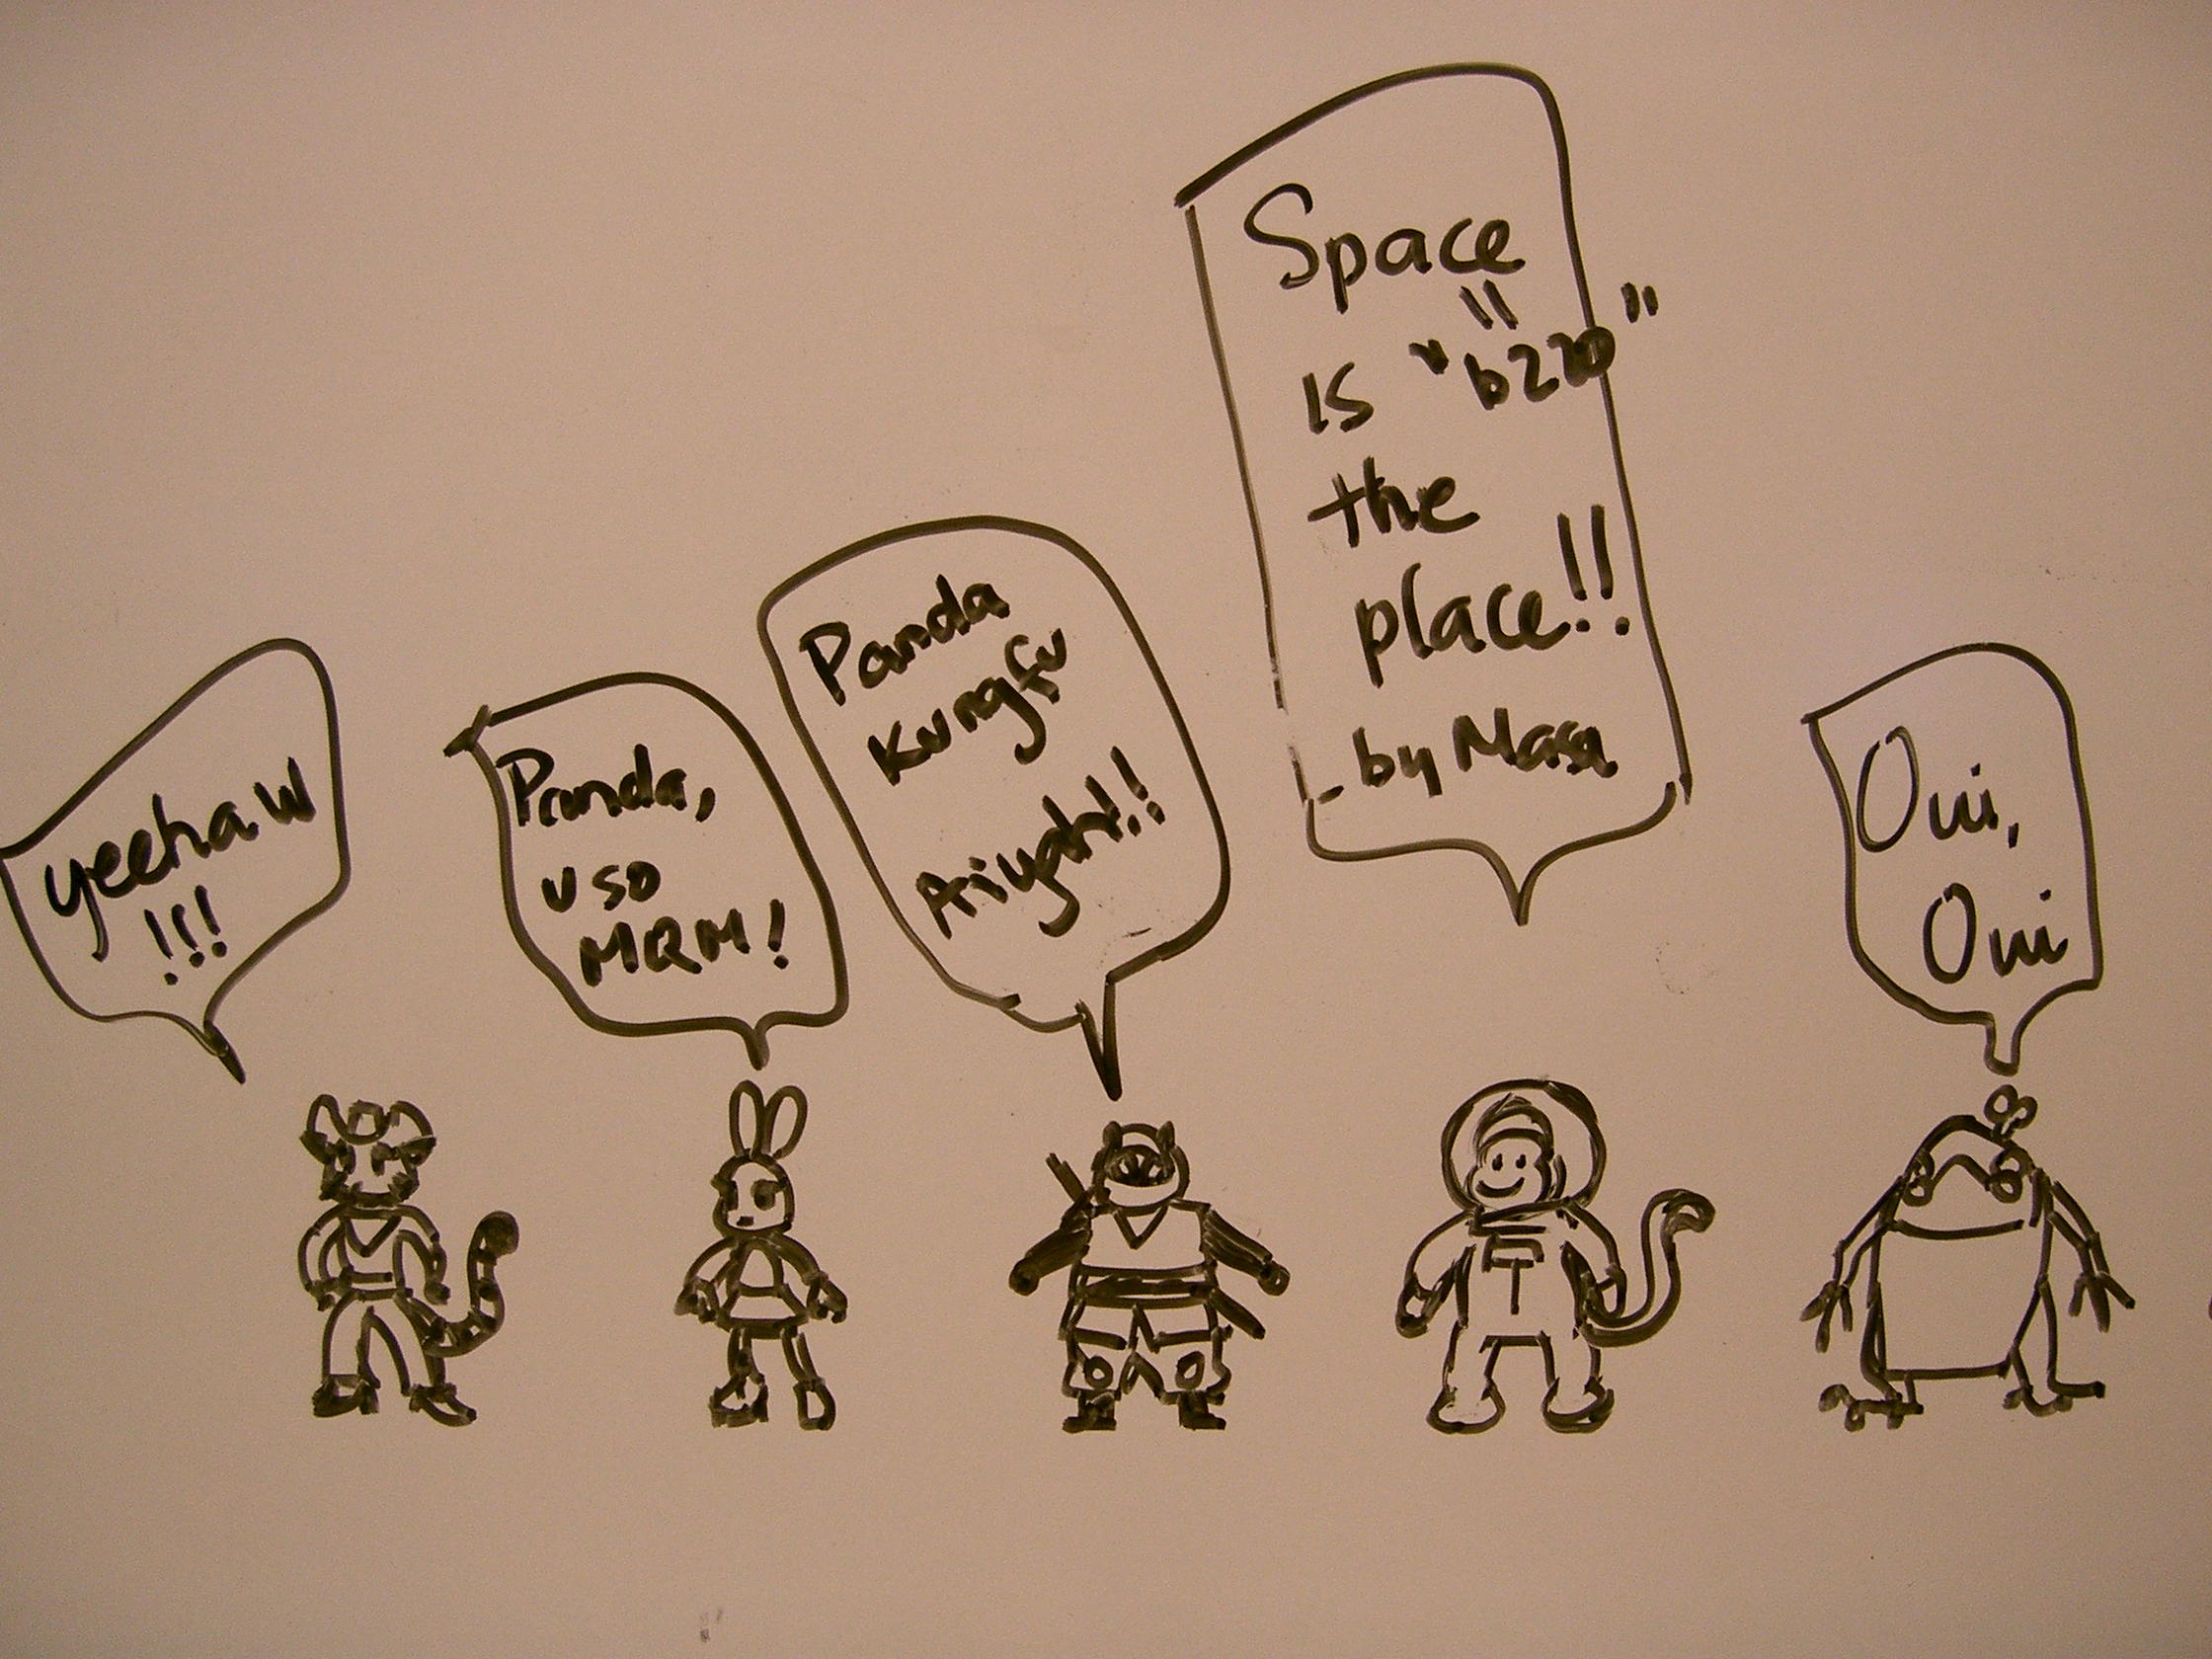 yeehaw
!!!
Panda,
u so
MQM!
Panda
Kungfu
Aiyah!!
Space
"
is "b220"
the
place!!
- by Masa
Oui,
Oui